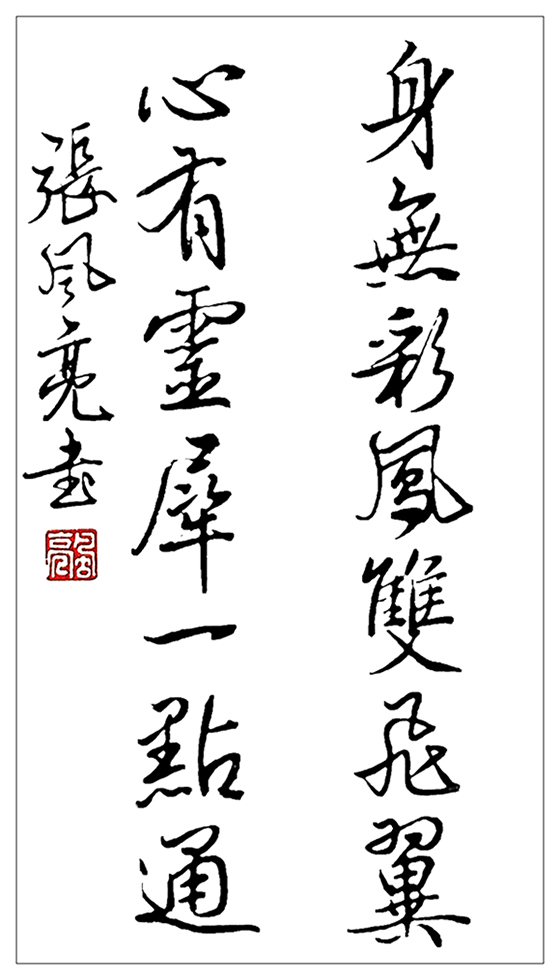 身無彩鳳雙飛翼
心有靈犀一點通
張風亮书